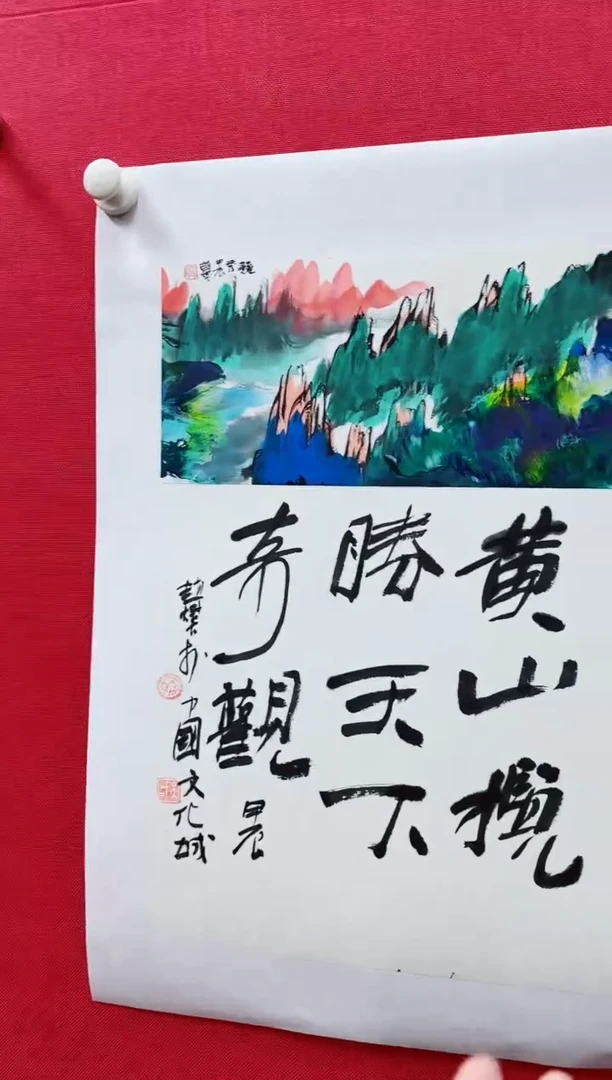 黄山攬
勝天下
奇觀 甲辰
於中國文化城